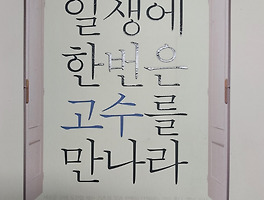 일생에
한번은
고수를
만나라